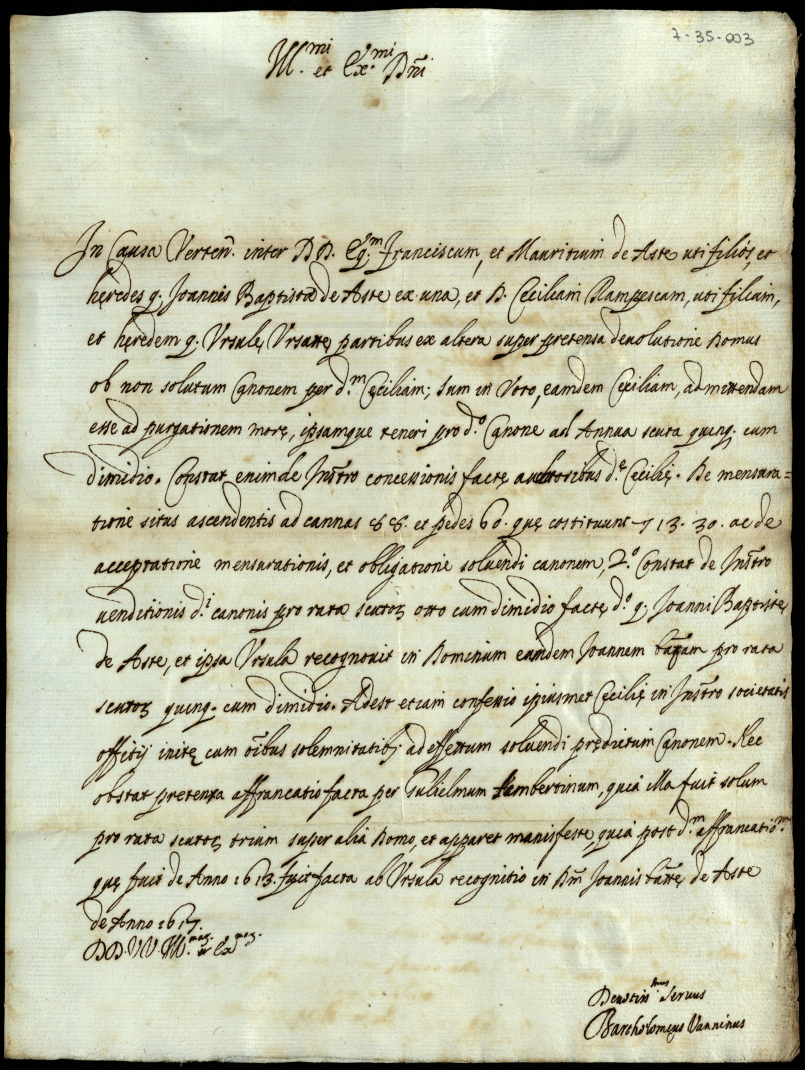 7-35-003
Ill.mi et Ex.mi Dñi
In Causa Verten. inter DD. Eq.m Franciscum, et Mauritium de Aste uti filios, et
hęredes q. Joannis Baptistæ de Aste ex una, et D. Ceciliam Rampescam, uti filiam,
et hęredem q. Vrsulę Vrsattę partibus ex altera super prętensa deuolutione Domus
ob non solutum Canonem per d.m Cęciliam; sum in Voto, eamdem Cęciliam, admittendam
esse ad purgationem morę, ipsamque teneri pro d.o Canone ad Annua scuta quinq. cum
dimidio. Constat enim de Inst̃ro concessionis factę auctoribus d.ę Cecilię. De mensura=
tione situs ascendentis ad cannas 88. et pedes 60. quę costituunt 713.30. ac de
acceptatione mensurationis, et obligatione soluendi canonem, 2.o Constat de Inst̃ro
uenditionis d.i canonis pro rata scutoꝝ otto cum dimidio factę d.o q. Joanni Baptistę
de Aste, et ipsa Vrsula recognouit in Dominum eumdem Joannem bap̃tam pro rata
scutoꝝ quinq. cum dimidio. Adest etiam confessio ipsiusmet Cecilię in Inst̃ro societatis
offitij initę cum oĩbus solemnitatibꝫ ad effectum soluendi prędictum Canonem. Nec
obstat prętensa affrancatio facta per Gulielmum Lambertinum, quia illa fuit solum
pro rata scutoꝝ trium super alia Domo, et apparet manifeste, quia post d.m affrancatio.m
quę fuit de Anno 1613. fuit facta ab Vrsula recognitio in Dm̃ Joannis bap̃tę de Aste
de Anno 1617.
DD. VV. Ill.maꝝ et Ex.maꝝ
Deuotiss.mus Seruus
Bartholomęus Vanninus